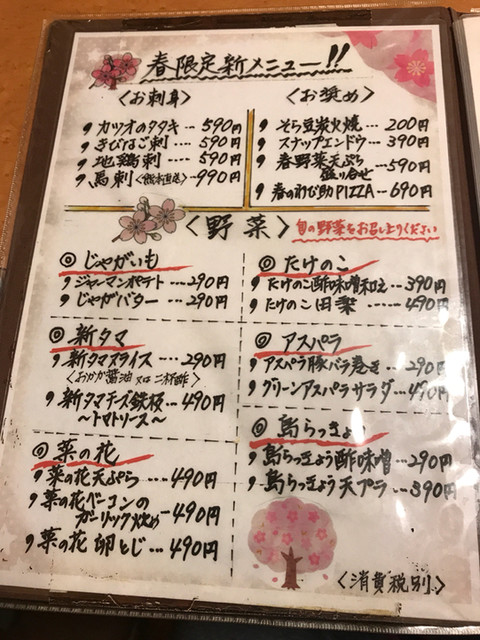 春限定新メニュー!!
〈お刺身〉
カツオのタタキ…590円
きびなご刺…590円
地鶏刺…590円
馬刺〈熊本直送〉…990円
〈お奨め〉
そら豆炭火焼…200円
スナップエンドウ…390円
春野菜天ぷら
盛り合せ…590円
春のわび助PIZZA…690円
〈野菜〉旬の野菜をお召し上りください
◎じゃがいも
ジャーマンポテト…290円
じゃがバター…290円
◎新タマ
新タマスライス…290円
〈おかか醤油 又は 二杯酢〉
新タマチーズ鉄板…490円
〜トマトソース〜
◎菜の花
菜の花天ぷら…490円
菜の花ベーコンの
ガーリック炒め…490円
菜の花 卵とじ…490円
◎たけのこ
たけのこ酢味噌和え…390円
たけのこ田楽……490円
◎アスパラ
アスパラ豚バラ巻き…290円
グリーンアスパラサラダ…490円
◎島らっきょう
島らっきょう酢味噌…290円
島らっきょう天プラ…390円
〈消費税別〉